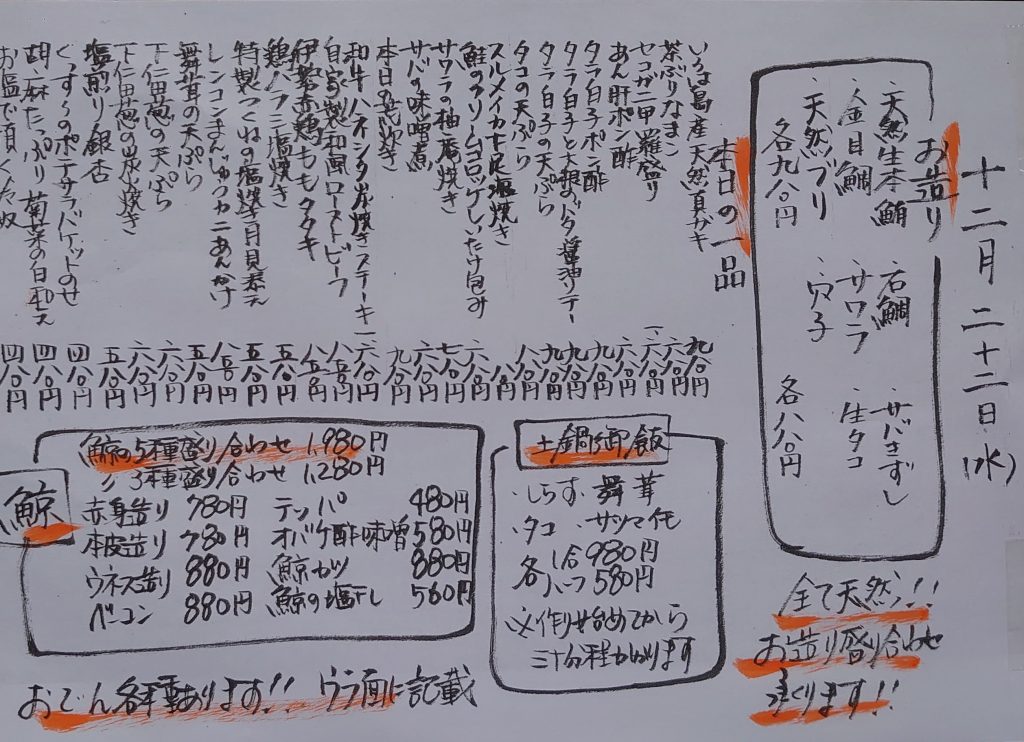 十二月二十二日(水)
お造り
・天然生本鮪 ・石鯛 ・サバきずし
・金目鯛 ・サワラ ・生タコ
・天然ブリ ・穴子
各九八〇円 各八八〇円
全て天然!!
お造り盛り合わせ
承ります!!
本日の一品
天然真ガキ 九八〇円
茶ぶりなまこ 六八〇円
セコガニ甲羅盛り
あん肝ポン酢 六八〇円
タラ白子ポン酢 九八〇円
タラ白子と大根のバタ醤油ソテー 九八〇円
タラ白子の天ぷら 九八〇円
タコの天ぷら 八八〇円
スルメイカ下足塩焼き
鮭のクリームコロッケしいたけ包み 六八〇円
サワラの柚庵焼き 七八〇円
サバの味噌煮 六八〇円
本日の炊き 九八〇円
和牛ハネシタ炭焼きステーキ 一六八〇円
自家製和風ローストビーフ 八八〇円
伊勢赤鶏ももタタキ 八五〇円
鶏ハラミ塩焼き 五八〇円
特製つくねの塩焼き月見添え 五八〇円
レンコンまんじゅうカニあんかけ 八五〇円
舞茸の天ぷら 五八〇円
下仁田葱の天ぷら 六八〇円
下仁田葱の炭焼き 五八〇円
塩煎り銀杏 四八〇円
くんすらのポテサラバケットのせ 四八〇円
胡麻たっぷり菊菜の白和え 四八〇円
お塩で頂くたな奴 四八〇円
土鍋御飯
・しらす ・舞茸
・タコ ・サツマイモ
各 1合 980円
ハーフ 580円
※作り始めてから
三十分程かかります
鯨
鯨の5種盛り合わせ 1,980円
〃 3種盛り合わせ 1,280円
赤身造り 780円 テッパ 480円
本皮造り 780円 オバケ酢味噌 580円
ウネス造り 880円 鯨カツ 880円
ベーコン 880円 鯨の塩干し 560円
おでん各種あります!! ウラ面に記載